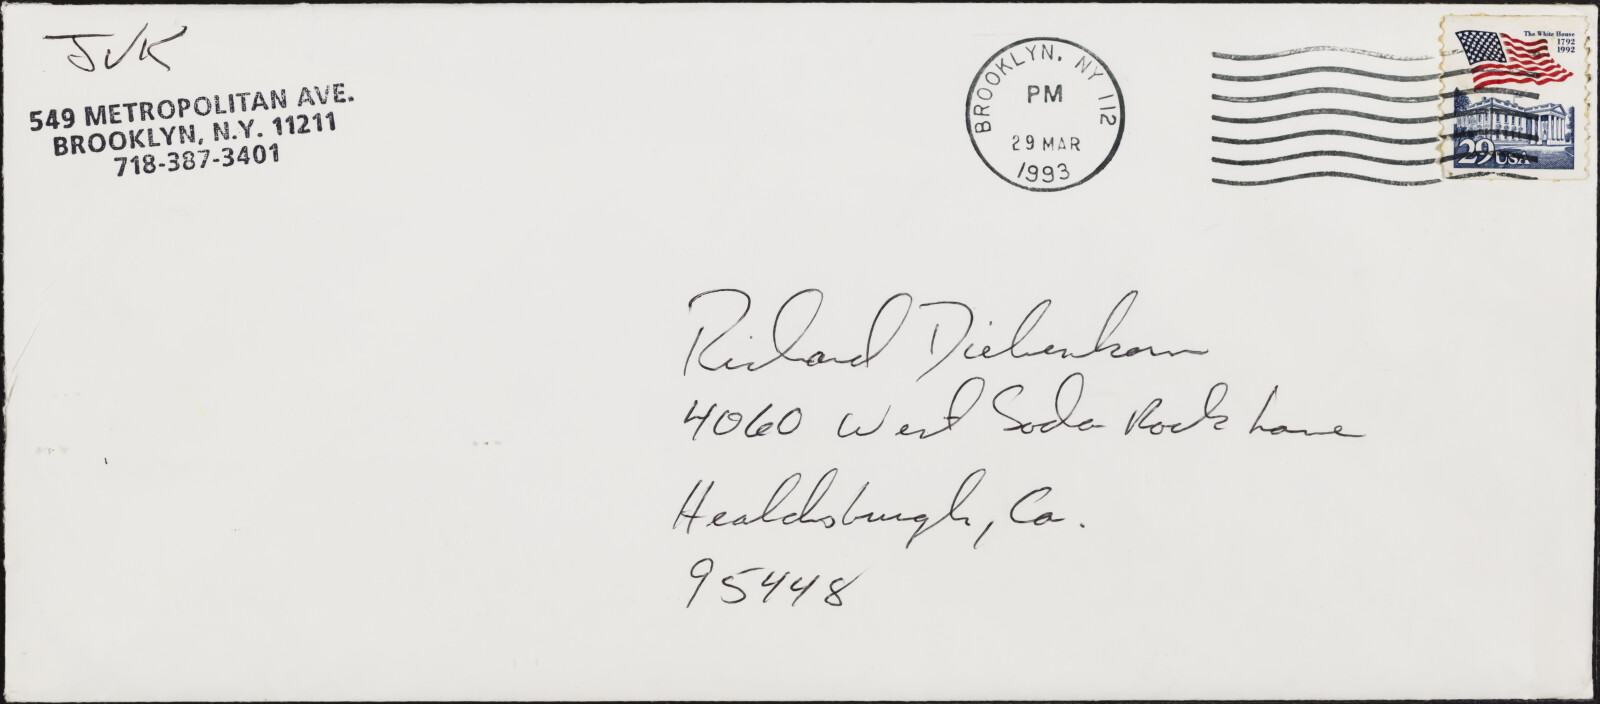 JVK
549 METROPOLITAN AVE.
BROOKLYN, N.Y. 11211
718-387-3401
BROOKLYN, NY 112
PM
29 MAR
1993
The White House
1792
1992
29 USA
Richard Diebenkorn
4060 West Soda Rock Lane
Healdsburgh, Ca.
95448